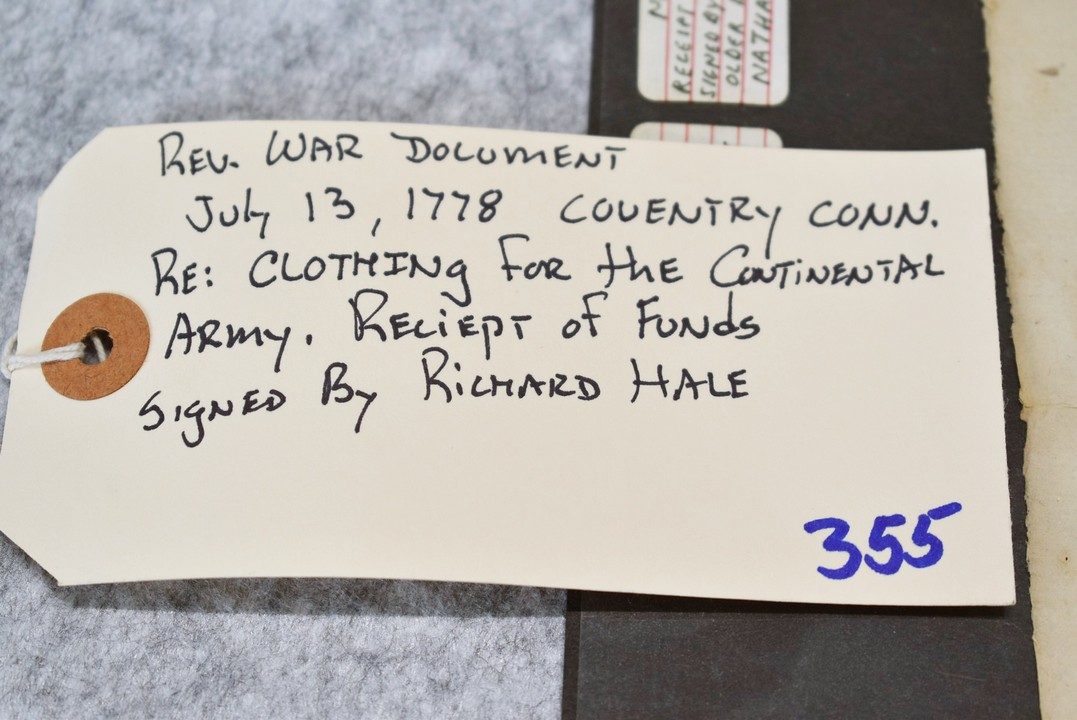 REV. WAR DOCUMENT
July 13, 1778 COVENTRY CONN.
RE: CLOTHING FOR the CONTINENTAL
ARMY. RECIEPT of FUNDS
SIGNED By RICHARD HALE
355
RECEIPT
SIGNED BY
OLDER